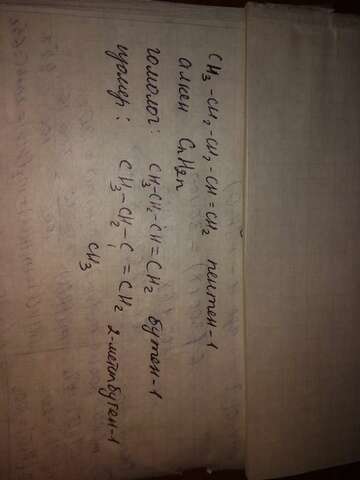 CH3-CH2-CH2-CH=CH2 пентен-1
алкен CnH2n
гомолог: CH3-CH2-CH=CH2 бутен-1
изомер: CH3-CH2-C=CH2 2-метилбутен-1
CH3